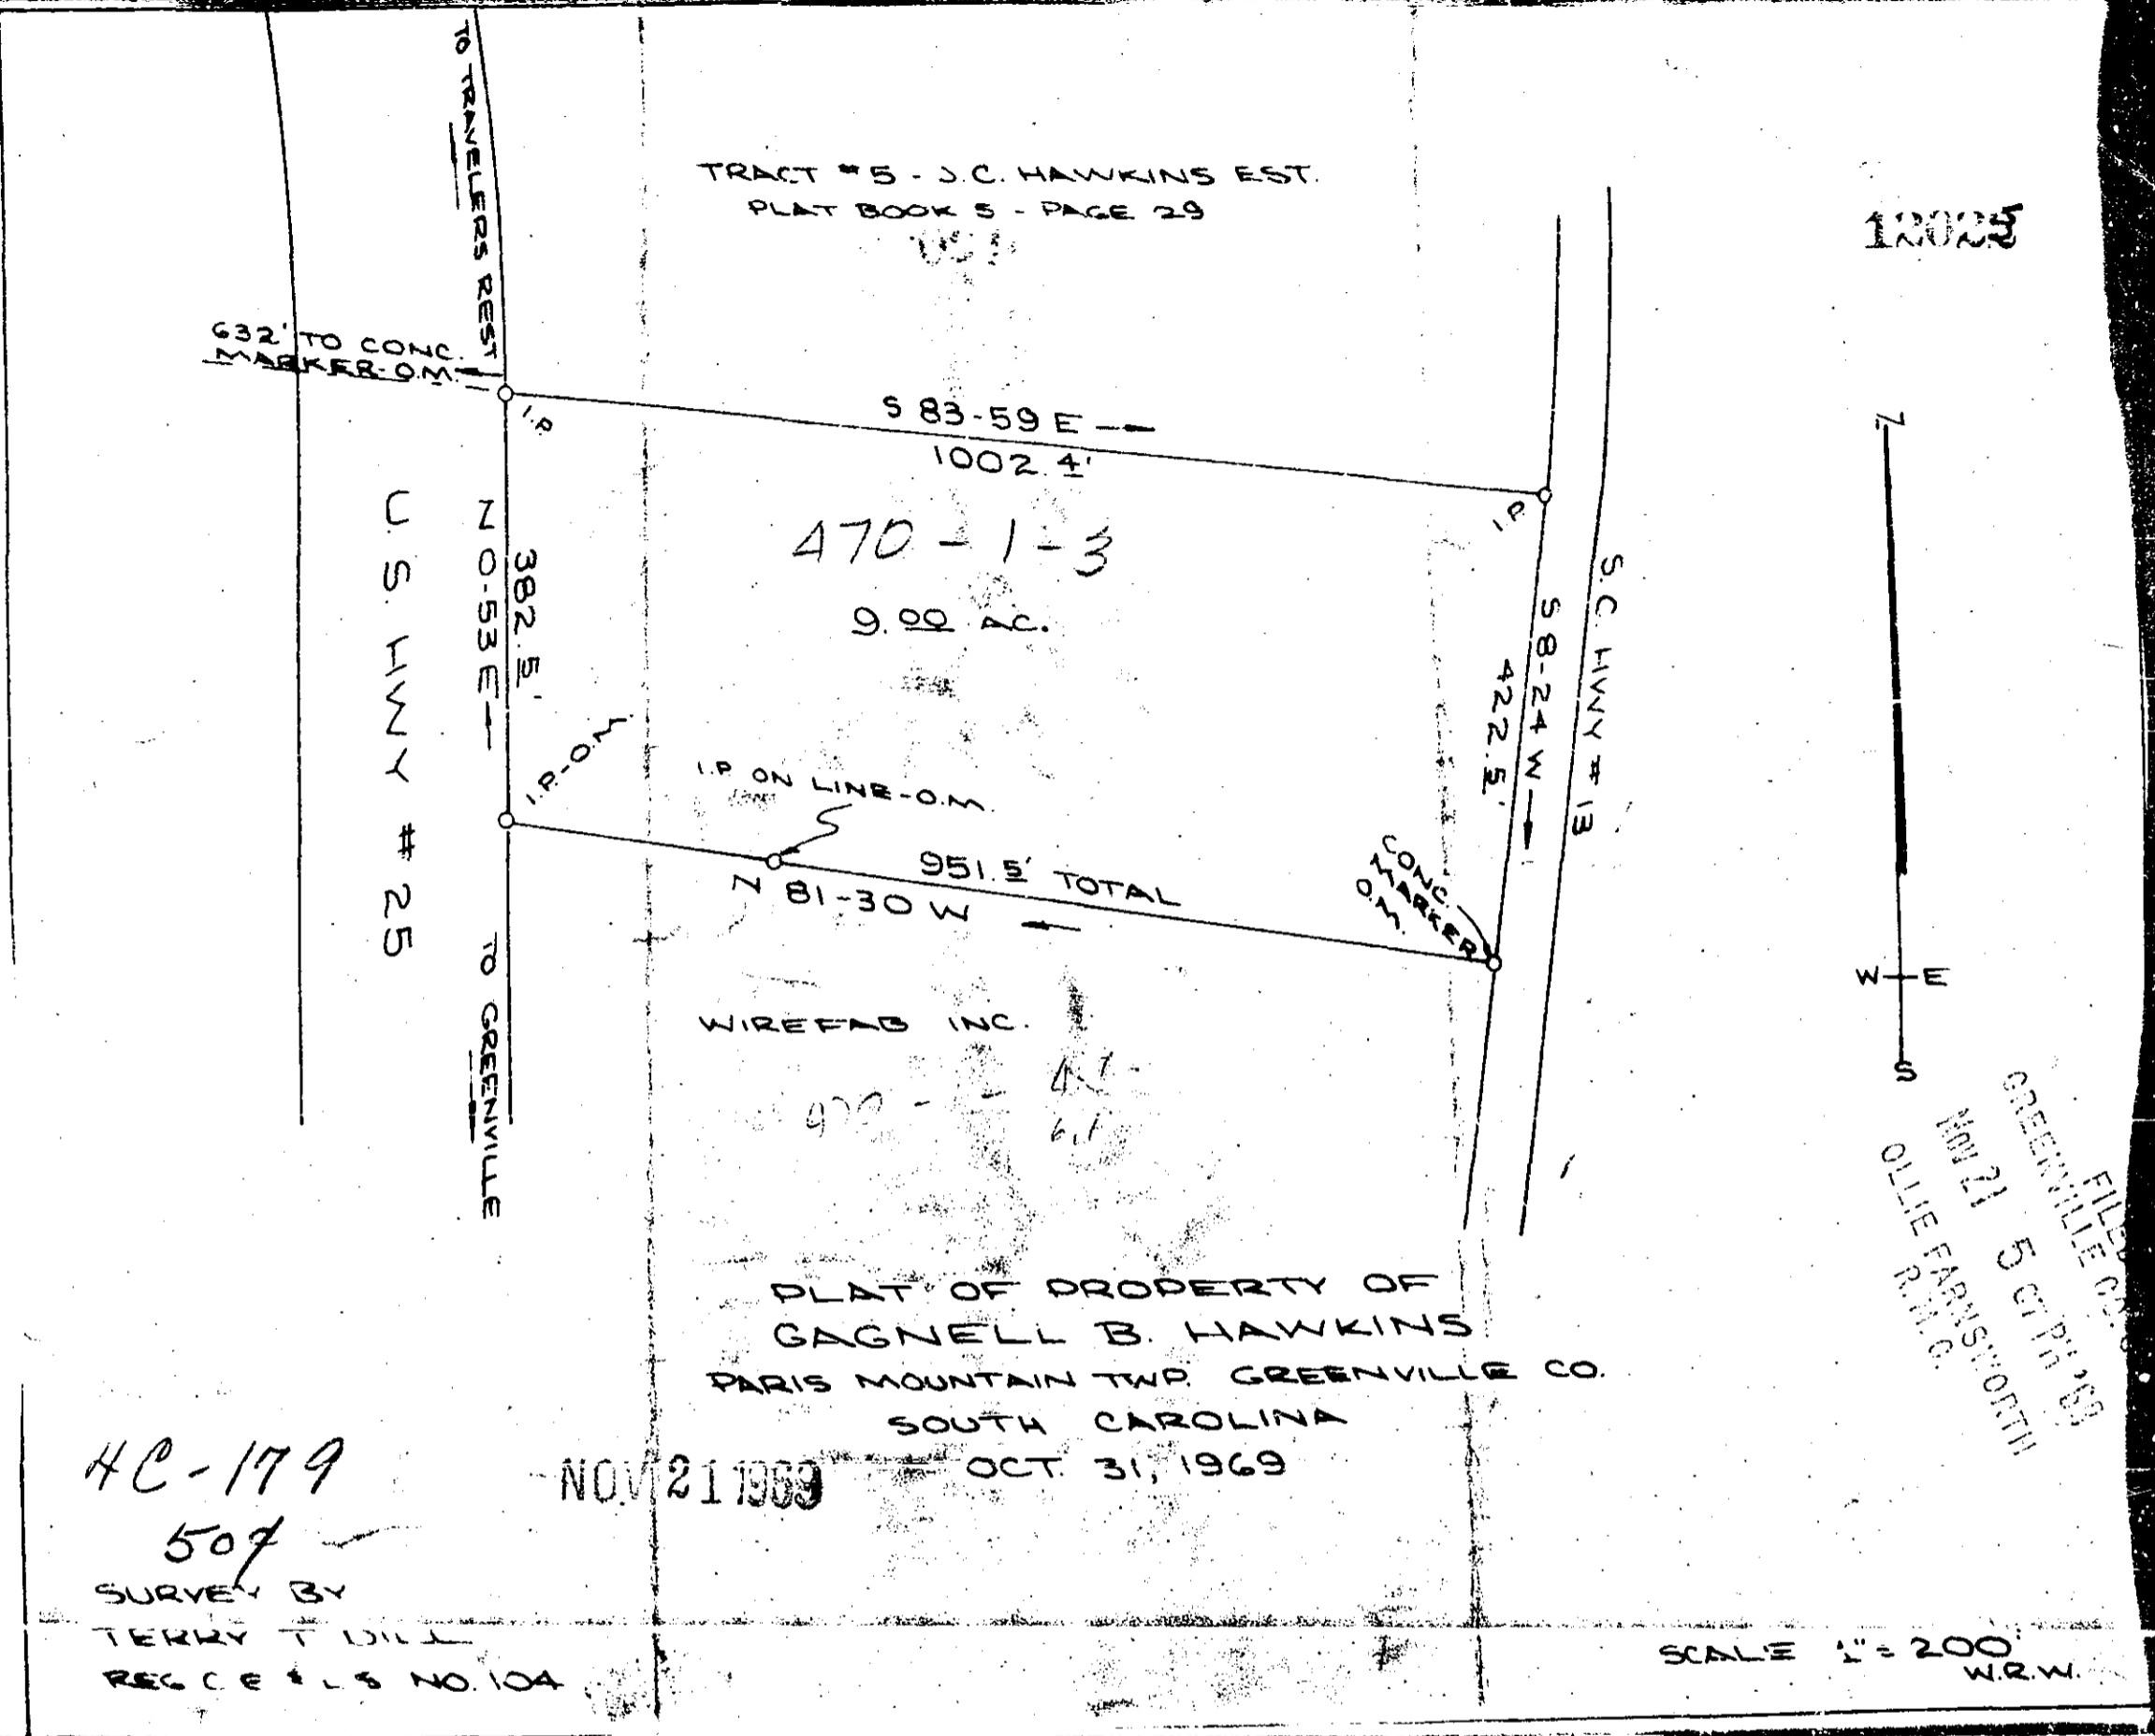 TO TRAVELERS REST
TRACT #5 - J.C. HAWKINS EST.
PLAT BOOK 5 - PAGE 29
12025
632' TO CONC.
MARKER-O.M.
I.P.
S 83-59 E
1002.4'
I.P.
N
U.S. HWY #25
N 0-53 E
382.5'
470-1-3
9.00 AC.
S 8-24 W
422.5'
S.C. HWY #13
I.P.-O.M.
I.P. ON LINE-O.M.
951.5' TOTAL
N 81-30 W
CONC.
MARKER
O.M.
W E
S
TO GREENVILLE
WIREFAB INC.
FILED
GREENVILLE CO.
NOV 21 5
OLLIE FARNSWORTH
R.M.C.
PLAT OF PROPERTY OF
GAGNELL B. HAWKINS
PARIS MOUNTAIN TWP. GREENVILLE CO.
SOUTH CAROLINA
OCT. 31, 1969
NOV 21 1969
4C-179
50¢
SURVEY BY
TERRY T DILL
REG C E & L S NO. 104
SCALE 1" = 200'
W.R.W.